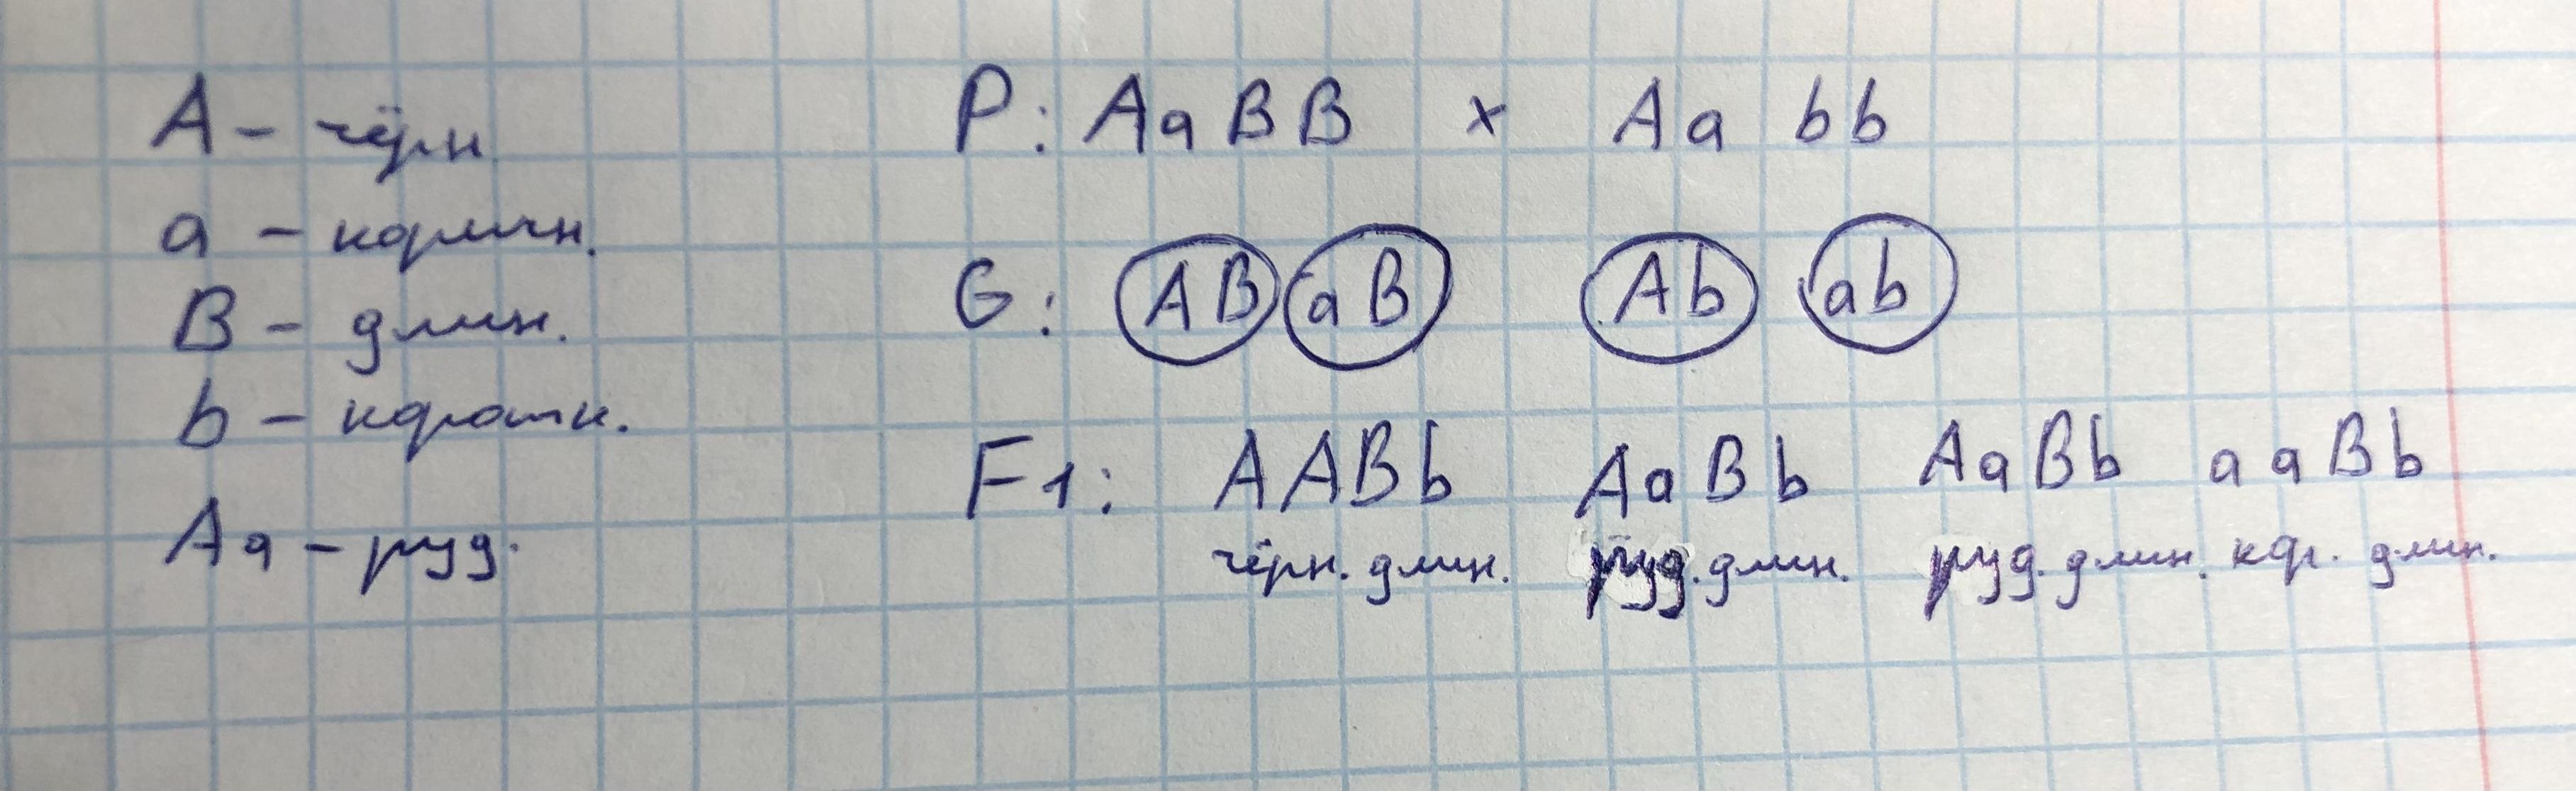 А - чёрн
а - коричн.
В - длин.
b - коротк.
Аа - руд.
P: AaBB x Aa bb
G: AB aB Ab ab
F1: AABb AaBb AaBb aaBb
чёрн. длин. руд. длин. руд. длин. кор. длин.